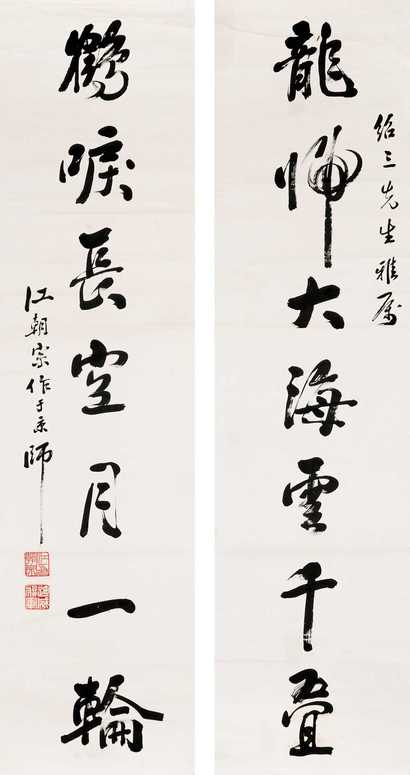 紹三先生雅属
龍歸大海雲千疊
鶴唳長空月一輪
江朝宗作于京師